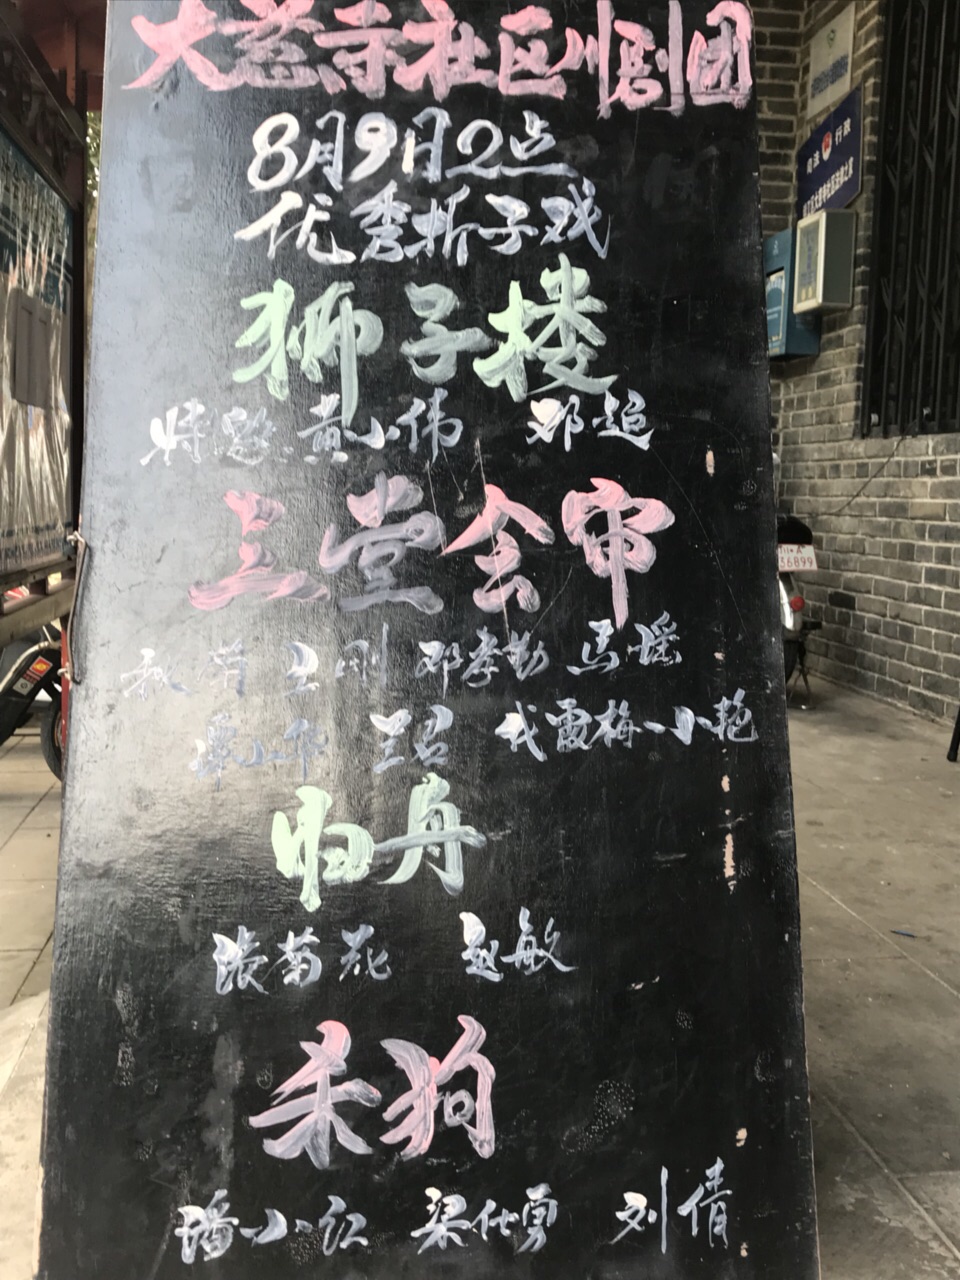 大慈寺社区川剧团
8月9日2点
优秀折子戏
狮子楼
特邀 黄小伟 邓超
三堂会审
刚 邓孝勤 马瑶
小华 兰君 代霞梅 小艳
归舟
张菊花 赵敏
杀狗
潘小红 梁仕勇 刘倩
司法 行政
36899